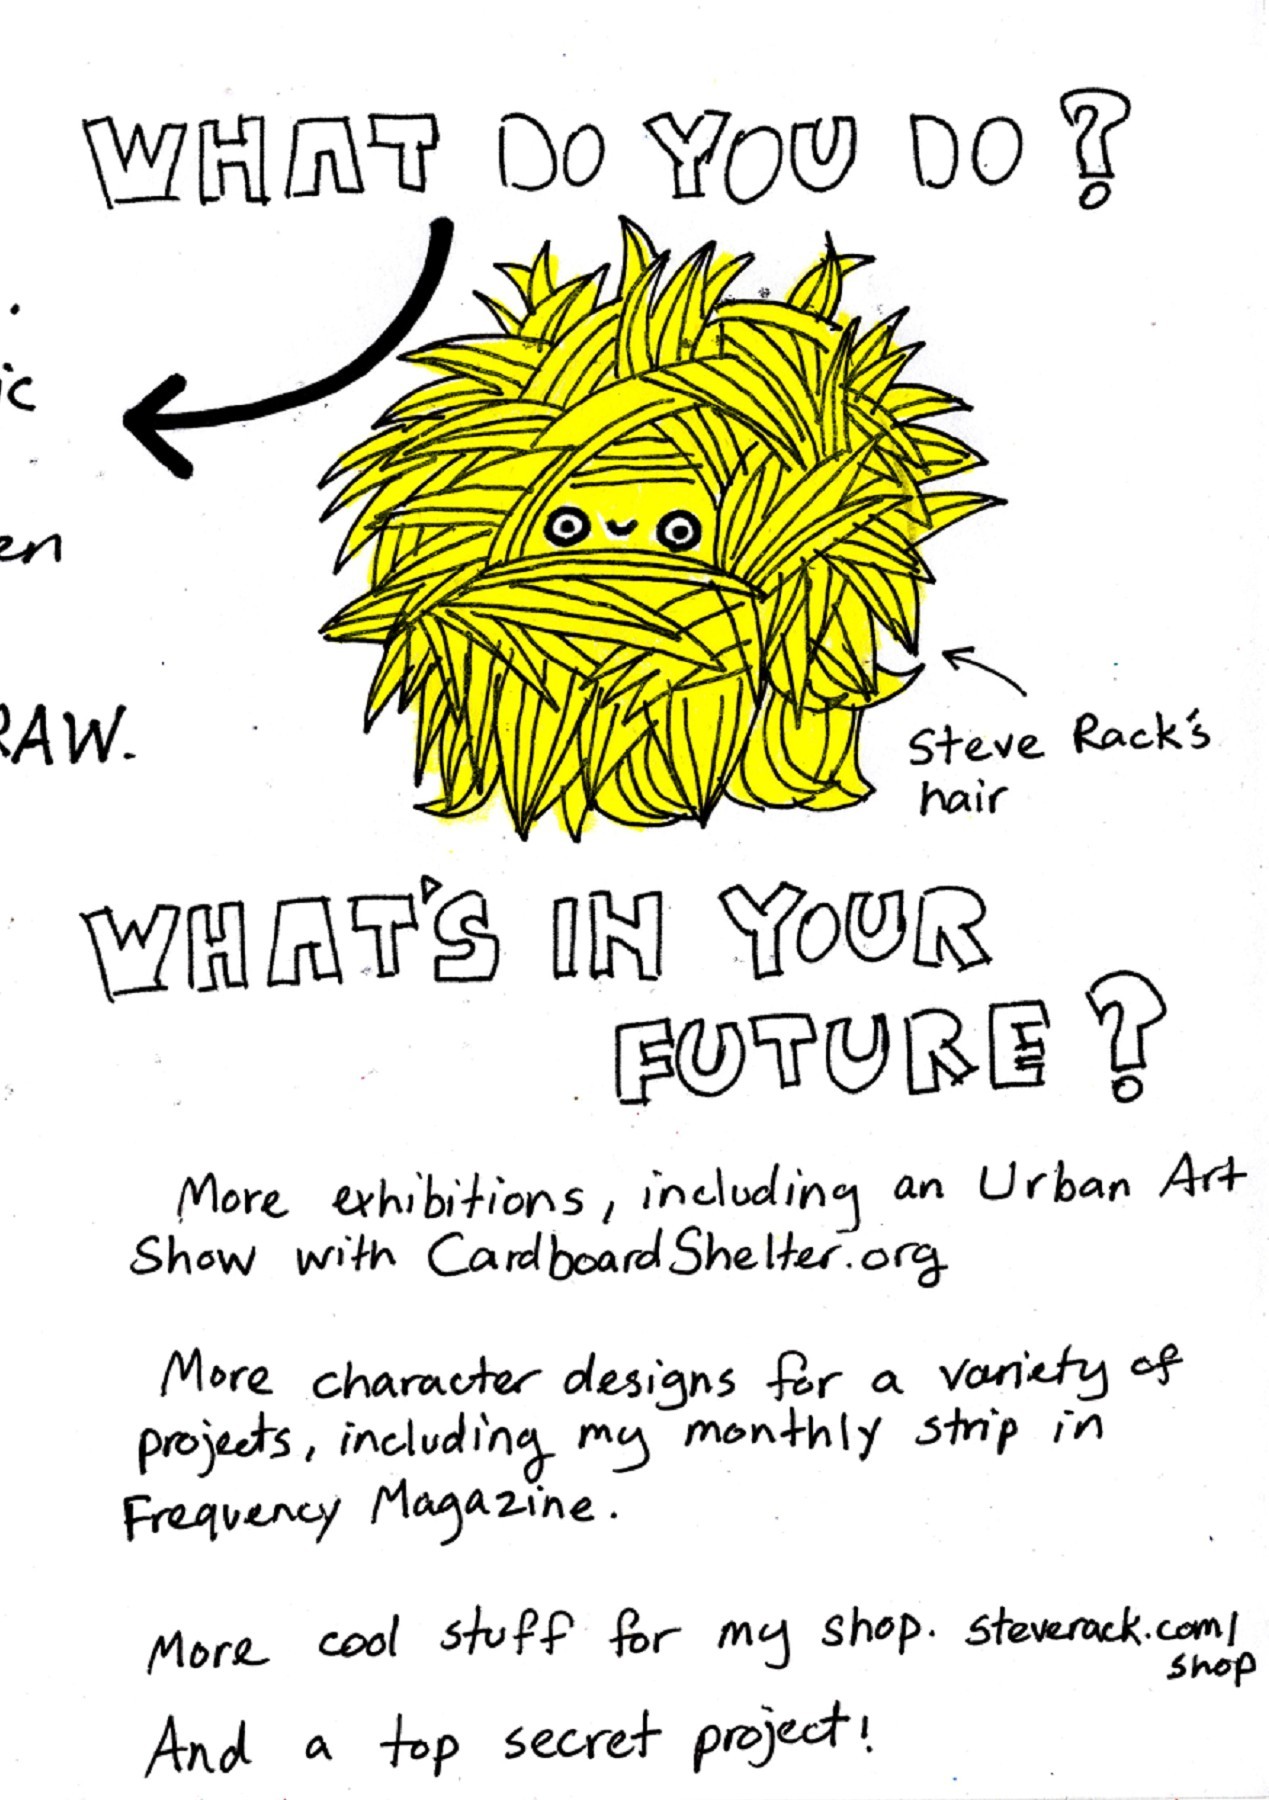 WHAT DO YOU DO?
.
ic
en
RAW.
Steve Rack's
hair
WHAT'S IN YOUR
FUTURE?
More exhibitions, including an Urban Art
Show with CardboardShelter.org
More character designs for a variety of
projects, including my monthly strip in
Frequency Magazine.
More cool stuff for my shop. steverack.com/
shop
And a top secret project!